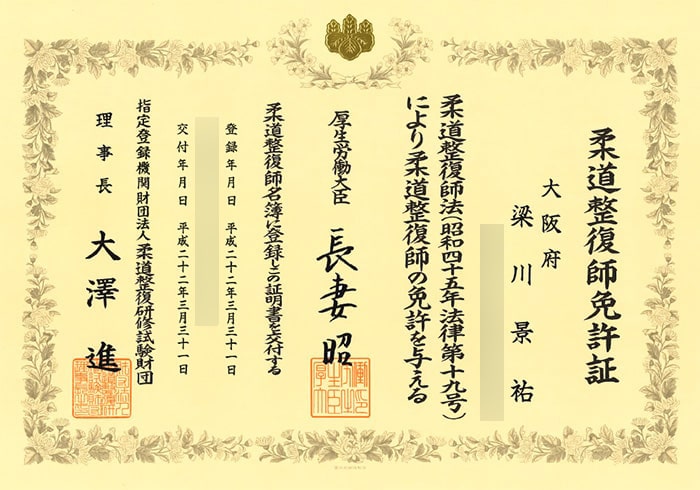 柔道整復師免許証
大阪府
梁川景祐
柔道整復師法(昭和四十五年法律第十九号)
により柔道整復師の免許を与える
厚生労働大臣 長妻昭
柔道整復師名簿に登録しこの証明書を交付する
登録年月日 平成二十二年三月三十一日
交付年月日 平成二十二年三月三十一日
指定登録機関財団法人柔道整復研修試験財団
理事長 大澤進